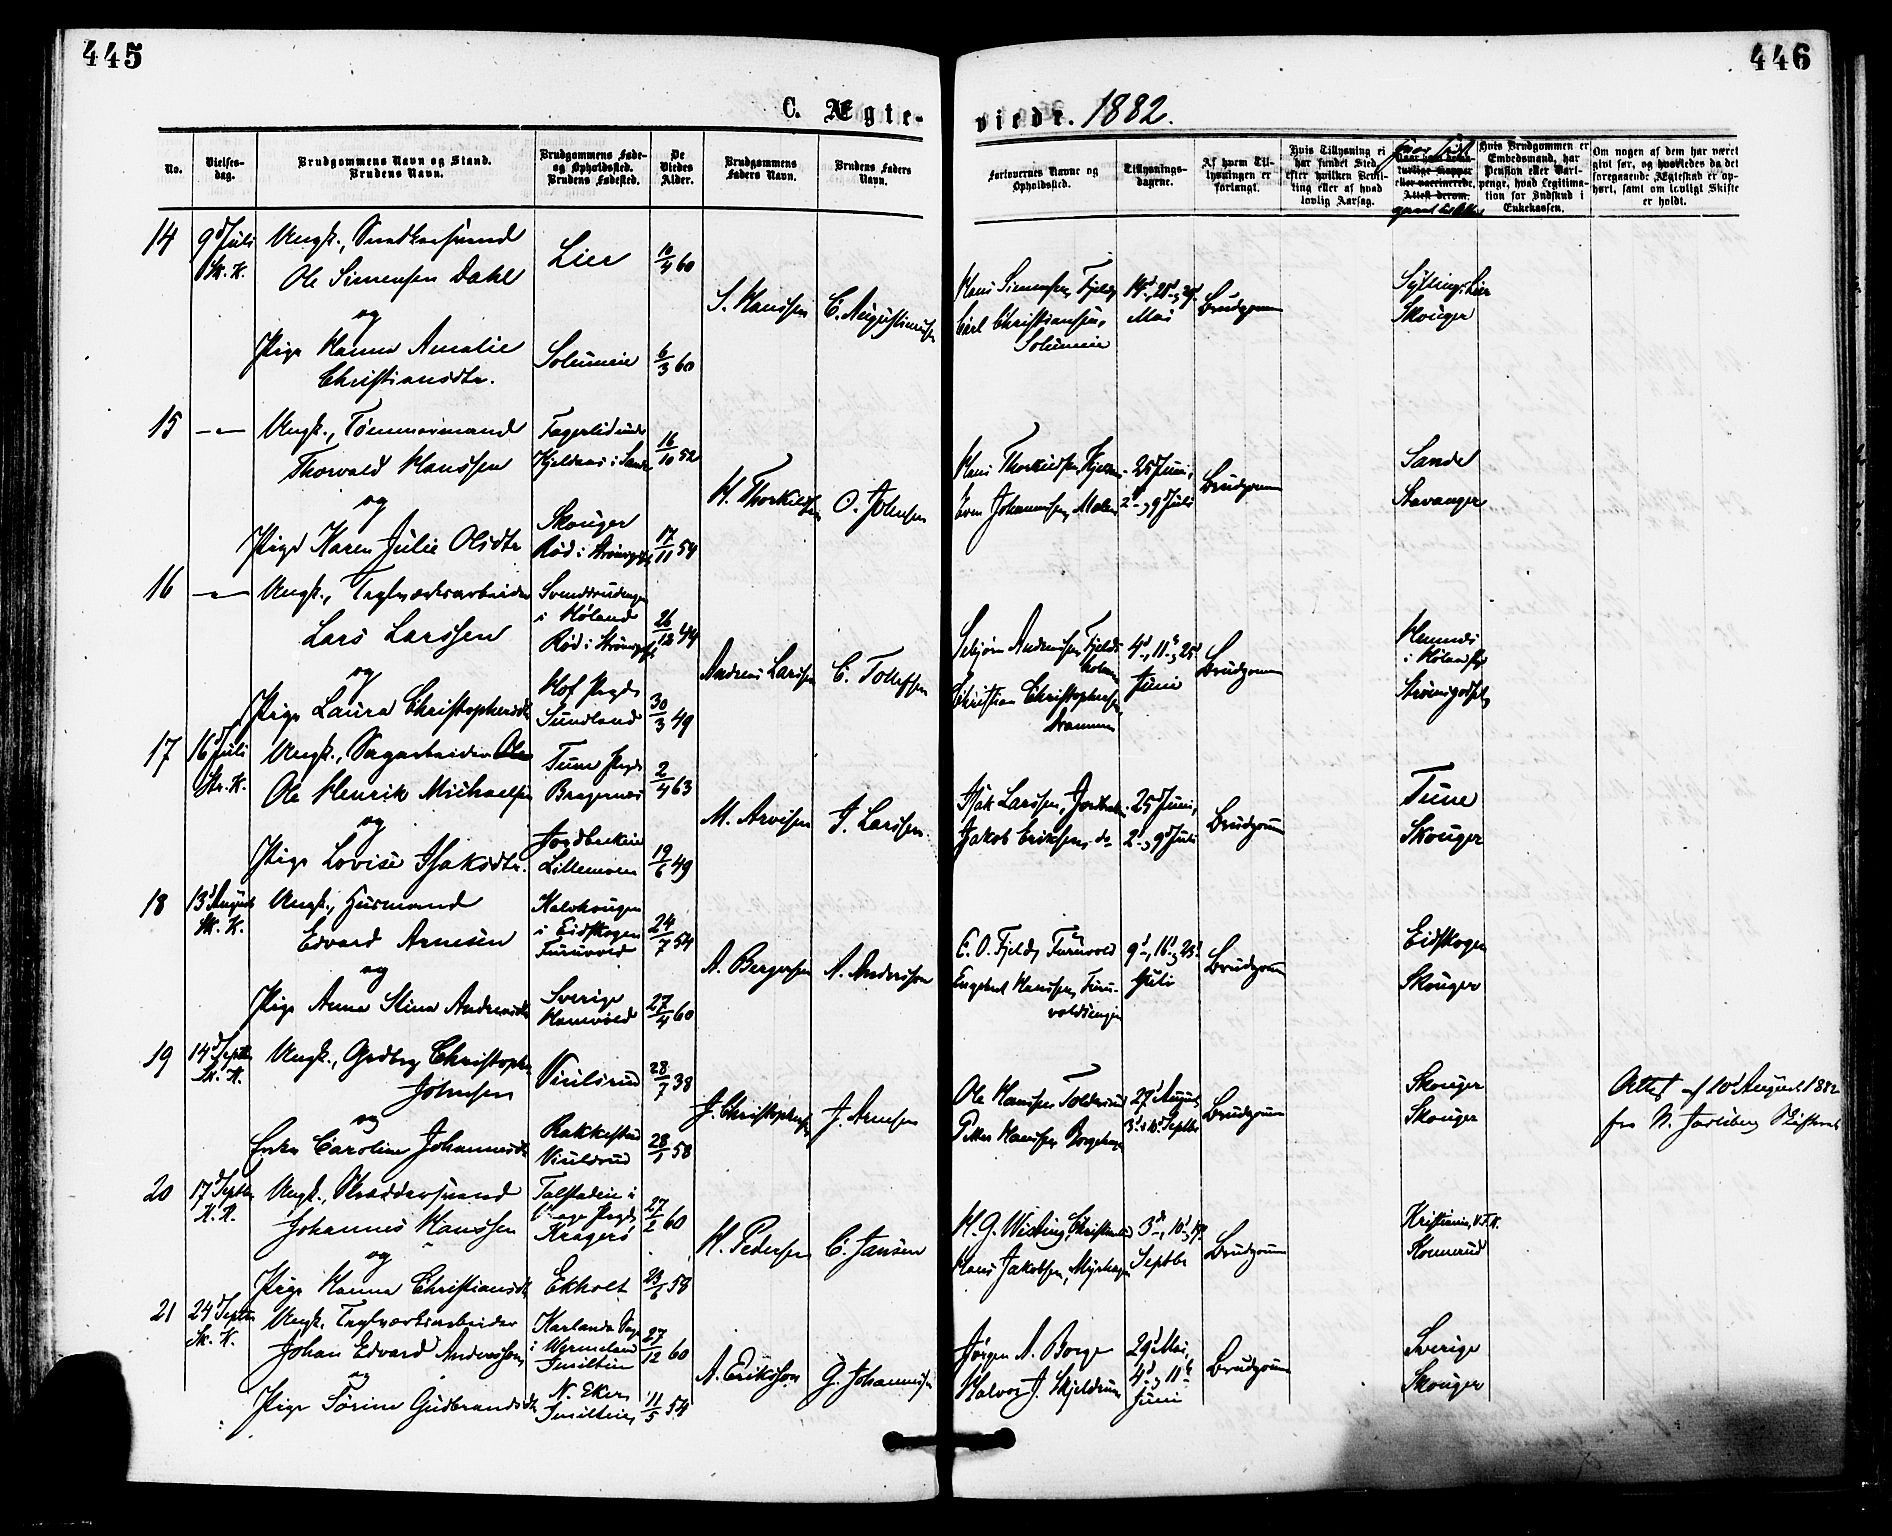 445
446
C. Ægte-
viede. 1882.
No.
Vielses-
dag.
Brudgommens Navn og Stand.
Brudens Navn.
Brudgommens Føde-
og Opholdssted.
Brudens Fødested.
De
Viedes
Alder.
Brudgommens
Faders Navn.
Brudens Faders
Navn.
Forlovernes Navne og
Opholdssted.
Tillysnings-
dagene.
Af hvem Til-
lysningen er
forlangt.
Hvis Tillysning ei
har fundet Sted,
efter hvilken Bevil-
ling eller af hvad
lovlig Aarsag.
Hvis Brudgommen er
Embedsmand, har
Pension eller Vart-
penge, hvad Legitima-
tion for Indskud i
Enkekassen.
Om nogen af dem har været
gift før, og hvorledes da det
foregaaende Ægteskab er op-
hørt, samt om lovligt Skifte
er holdt.
14
9d Juli
Sk. K.
Ungk., Snedkersvend
Ole Simensen Dahl
og
Pige Hanna Amalie
Christiansdtr.
Lier
Solumeie
10/4 60
6/3 60
S. Hanssen
C. Augustinusen
Hans Simensen, Fjeld,
Carl Christiansen,
Solumeie
14d, 21d, 29d
Mai
Brudgom
Sylling, Lier
Skouger
15
Ungk., Tømmermand
Thorvald Hanssen
og
Pige Karen Julie Olsdtr
Fagerlid under
Kjeldaas i Sande
Skouger
Rød i Strømsgodset
16/10 52
17/11 54
H. Thorkildsen
O. Johnsen
Hans Thorkildsen, Kjeldaas
Even Johannessen, Malen
25d Juni,
2d, 9d Juli
Brudgom
Sande
Stavanger
16
Ungk., Teglværksarbeider
Lars Larssen
og
Pige Laura Christophersdtr
i Høland
Rød i Strømsgodset
Hof Prgd.
Sundland
26/12 44
30/3 49
Andreas Larssen
C. Tollefsen
Christian Christophersen
Drammen
4d, 11d, 25d
Juni
Brudgom
Hemnes
i Høland Pgd
Strømsgodset
17
16d Juli
Str. K.
Ungk., Sagarbeider
Ole Henrik Michaelsen
og
Pige Lovise Isaksdtr.
Tune Prgd.
Bragernes
Jordbrekeie
Lillemoen
2/4 63
19/6 49
M. Arvesen
I. Larssen
Isak Larssen, Jordbrek
Jakob Eriksen, do
25d Juni,
2d, 9d Juli
Brudgom
Tune
Skouger
18
13d August
Sk. K.
Ungk., Husmand
Edvard Arnesen
og
Pige Anna Stina Andreasdtr
Kalvhougen
i Eidskogen
Furuvold
Sverige
24/7 54
27/4 60
A. Bergersen
A. Andersson
E. O. Fjeld, Furuvold
Engebret Hanssen, Furu-
voldengen
9d, 16d, 23d
Juli
Brudgom
Eidskogen
Skouger
19
14d Septbr
Sk. K.
Ungk., Grdbrg Christopher
Johnsen
og
Enke Caroline Johannesdtr
Virilsrud
Rakkestad
Virilsrud
28/7 38
28/1 58
J. Christophersen
J. Arnesen
Ole Hanssen Tolderud
Petter Hanssen Borgehagen
27d August
3d, 10d Septbr
Brudgom
Skouger
Skouger
Attest af 10d August 1882
fra N. Jarlsberg Skifteret
20
17d Septbr
K. K.
Ungk., Skreddersvend
Johannes Hanssen
og
Pige Hanna Christiansdtr
Kragerø
Ekholt
27/2 60
23/6 58
H. Pedersen
C. Jansen
H. G. Wisting, Christianslund
Hans Jakobsen, Myrhagen
3d, 10d, 17d
Septbr
Brudgom
Kristiania, V.F.K.
Konnerud
21
24d Septbr
Sk. K.
Ungk. Teglværksarbeider
Johan Edvard Andersson,
og
Pige Sørine Gudbrandsdtr
Karlanda Sogn
i Wermeland
Smilteie
N. Eker,
Smiltein
27/12 60
11/5 54
A. Eriksson
G. Johannesen
Jørgen A. Borge
Halvor J. Skjeldrum
29d Mai,
4d, 11d
Juni
Brudgom
Sverige
Skouger